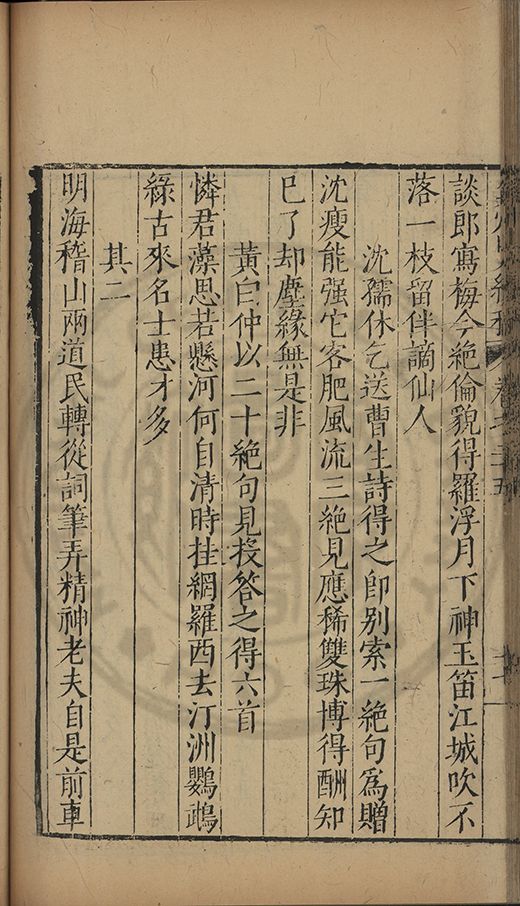 談郎寫梅今絶倫貌得羅浮月下神玉笛江城吹不
落一枝留伴謫仙人
沈孺休乞送曹生詩得之卽别索一絶句爲贈
沈瘦能强它客肥風流三絶見應稀雙珠博得酬知
巳了却塵緣無是非
黃白仲以二十絶句見投答之得六首
憐君藻思若懸河何自清時挂網羅西去汀洲鸚鵡
綠古來名士患才多
其二
明海稽山兩道民轉從詞筆弄精神老夫自是前車